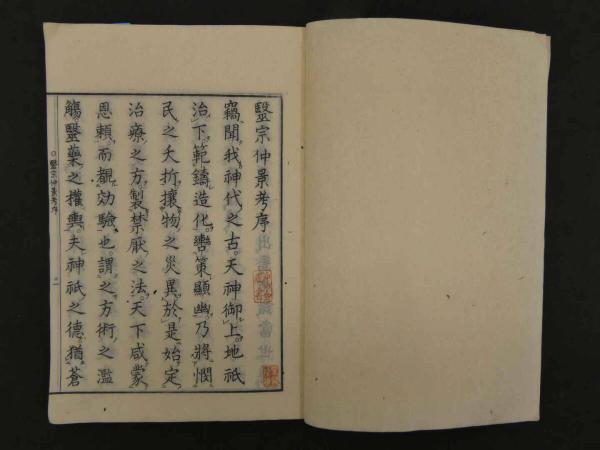 醫宗仲景考序
竊聞我神代之古天神御上地祇
治下範鑄造化轡策顯幽乃將憫
民之夭折攘物之災異於是始定
治療之方製禁厭之法天下咸蒙
恩頼而覩効驗也謂之方術之濫
觴醫藥之權輿夫神祇之德猶蒼
醫宗仲景考序